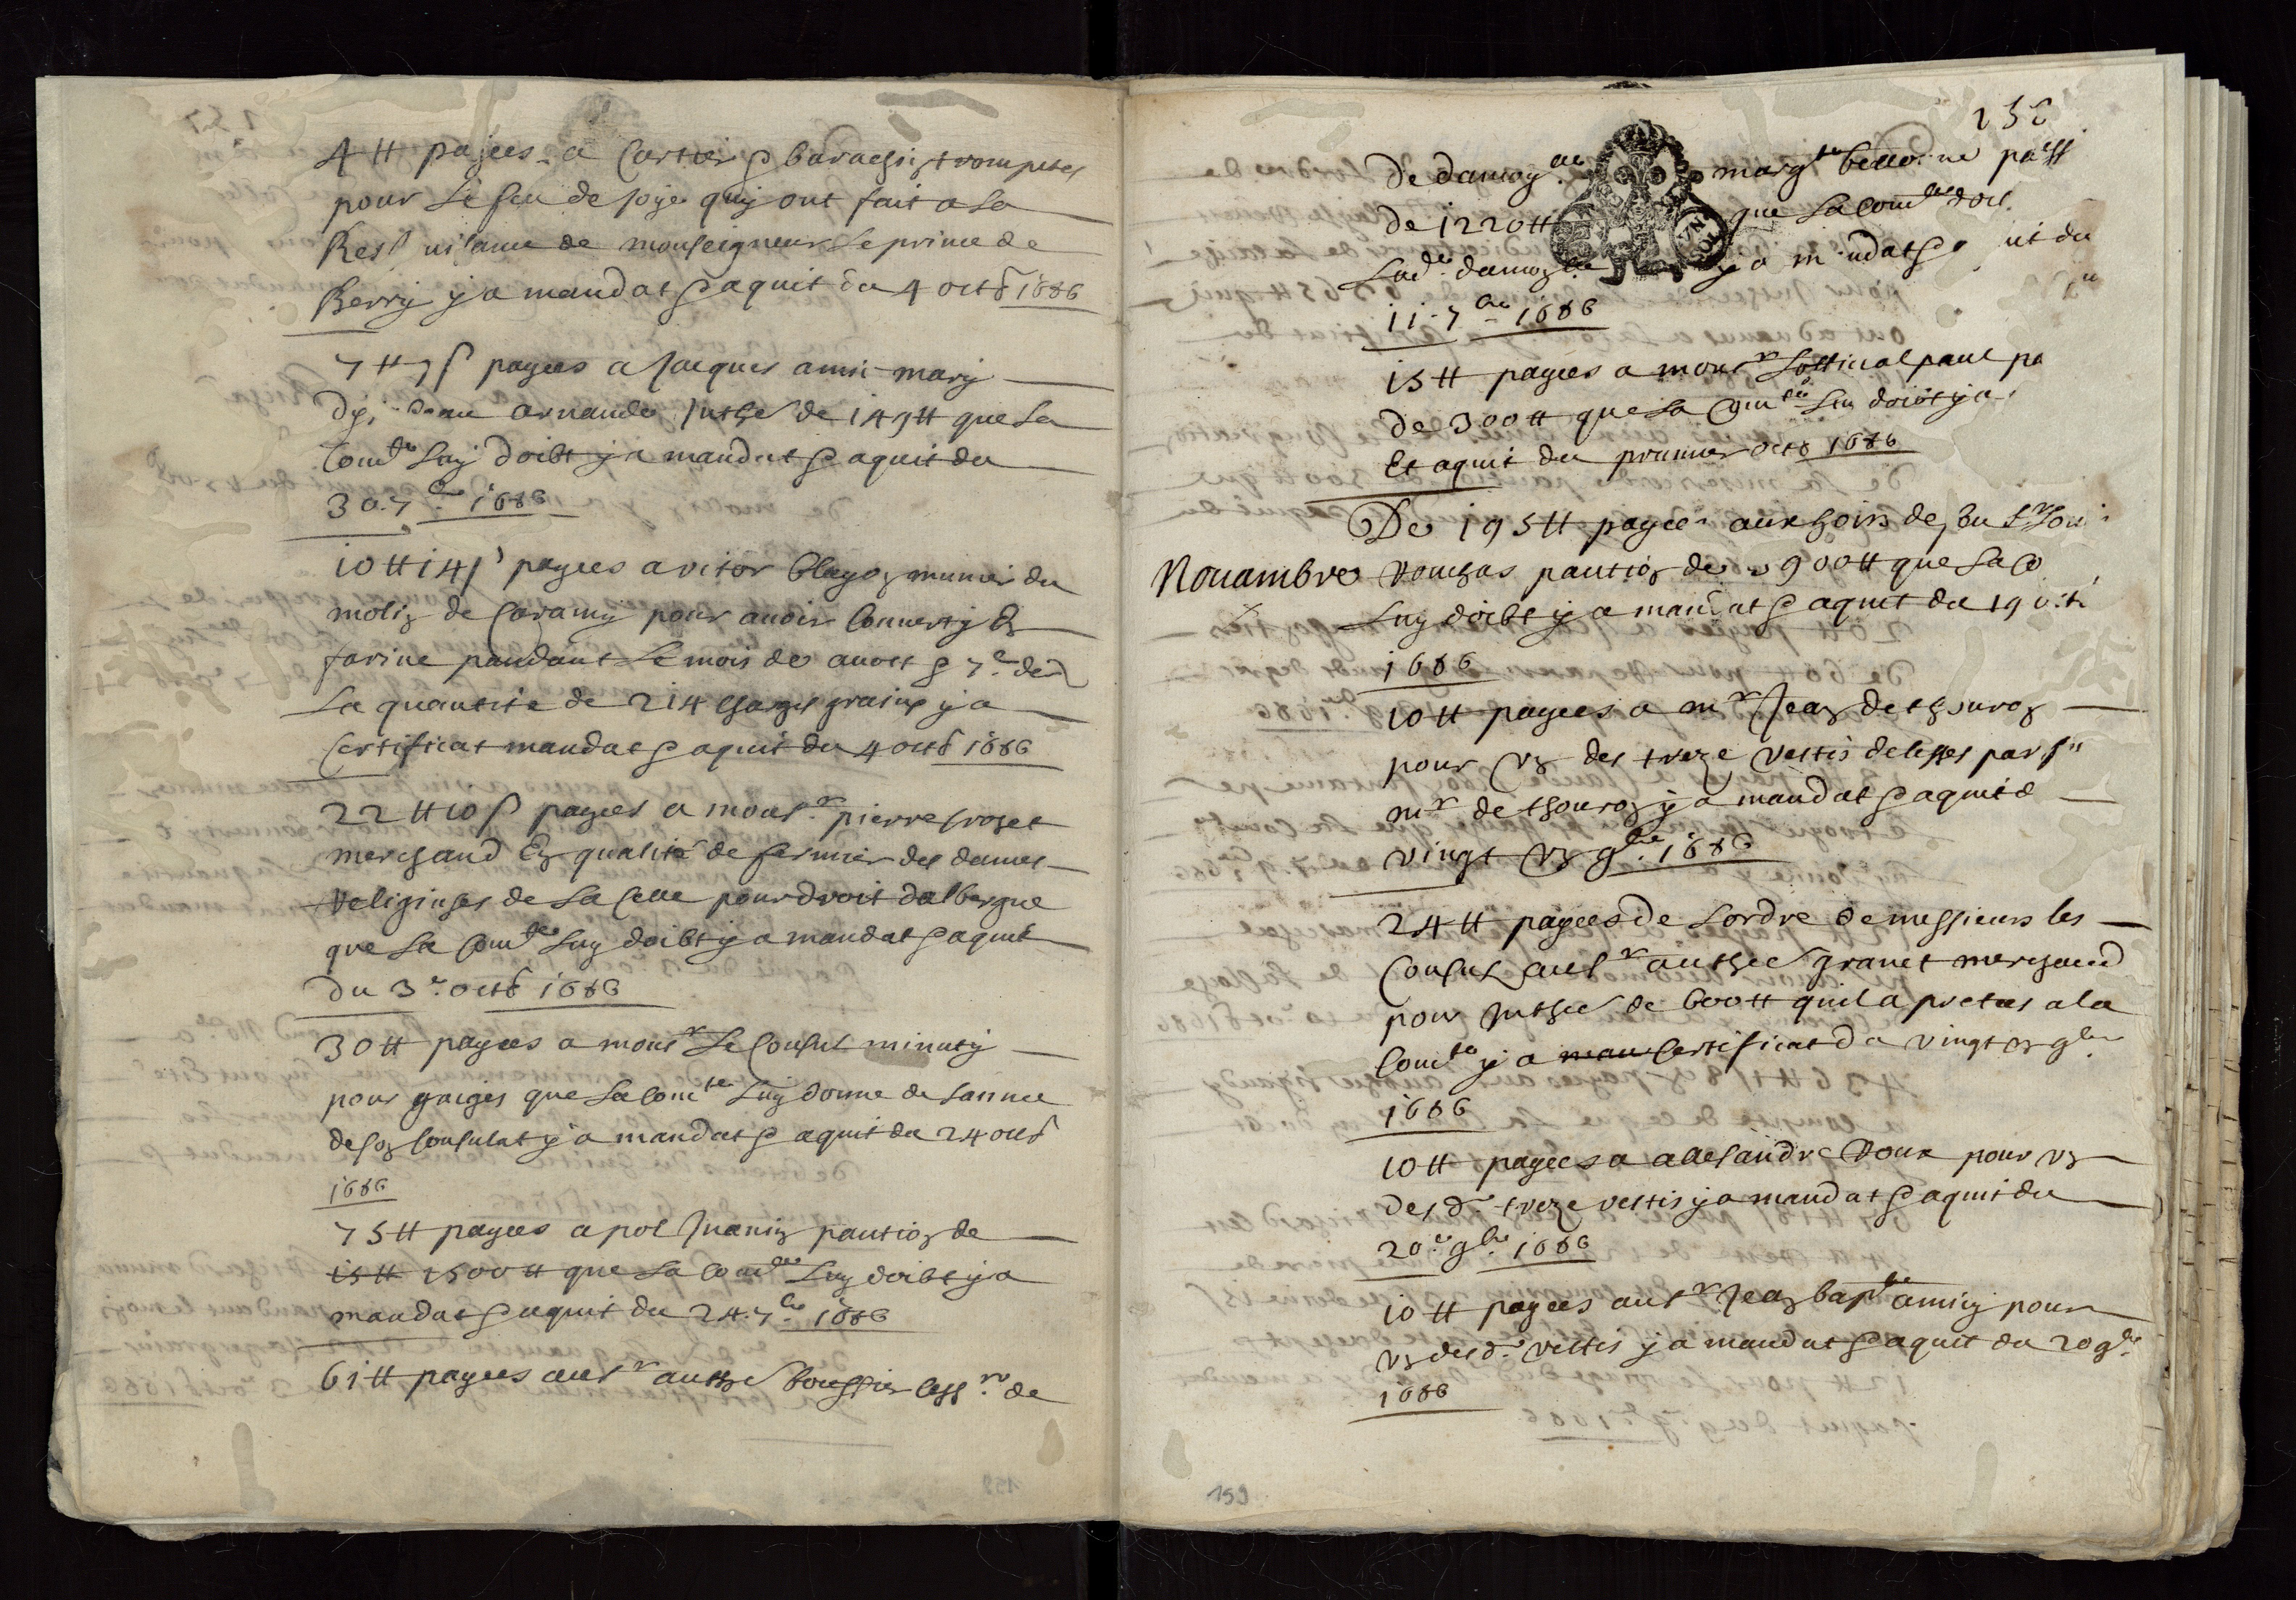 4 ₶ payees a Cartier & barachin trompetes
pour Le feu de joye quy ont fait a La
Resˢ nisance de monseigneur Le prince de
Berry y a mandat & aquit du 4 octb 1686
7 ₶ 9 s payees a Jacques amic mary
de arnaude Jnthᵗ de 149 ₶ que La
Comᵗᵉ Luy doibt y a mandat & aquit du
30. 7ᵇʳᵉ 1686
10 ₶ 14 s payees a vitor blayoz munier du
moliz de Caramy pour avoir Converty Ez
farine pandant Le mois de auost & 7ᵉ der
La quantite de 214 charges grains y a
Certificat mandat & aquit du 4 octb 1686
22 ₶ 10 s payees a monsʳ pierre crozet
merchand Ez qualité de fermier des dames
Religieuses de La Celle pour droit dalbergue
que La Comᵗᵉ Luy doibt y a mandat & aquit
du 3ᵉ octb 1686
30 ₶ payees a monsʳ Le Consul minuty
pour gaiges que La Comᵗᵉ Luy donne de Lannee
de soz Consulat y a mandat & aquit du 24 octb
1686
75 ₶ payees a pol Juaniz pantioz de
15 ₶ 1500 ₶ que La Comᵗᵉ Luy doibt y a
mandat & aquit du 24. 7ᵇʳᵉ 1686
61 ₶ payees au sʳ anthᵉ boussier cessʳᵉ de
158
de damoyˡˡᵉ margᵗᵉ
de 1220 ₶ que La Comᵗᵉ doit
Ladᵉ damoyˡˡᵉ y a mandat & du
11. 7ᵇʳᵉ 1686
15 ₶ payees a monsʳ Lofficial paul pa
de 300 ₶ que La Comᵗᵉ Luy doibt y a
Et aquit du premier octb 1686
De 195 ₶ payees aux hoirs de feu sʳ
Nouambre
pantioz de 3900 ₶ que La Co
Luy doibt y a mandat & aquit du 19
1686
10 ₶ payees a mʳ Jeaz de thouroz
pour vz des treze vestis delesses par fu
mʳ de thouroz y a mandat & aquit d
vingt vz 9ᵇʳᵉ 1686
24 ₶ payees de Lordre de messieurs les
Consuls au sʳ anthᵉ granet merchand
pour Jnthᵗ de 600 ₶ quil a pretees a la
Comᵗᵉ y a man Certificat du vingt vz 9ᵇʳᵉ
1686
10 ₶ payees a allesandre Roux pour vz
des dᵗ treze vestis y a mandat & aquit du
20ᵉ 9ᵇʳᵉ 1686
10 ₶ payees au sʳ Jeaz bapᵗᵉ amiy pour
vz des dᵗ vestis y a mandat & aquit du 20 9ᵇʳᵉ
1686
159